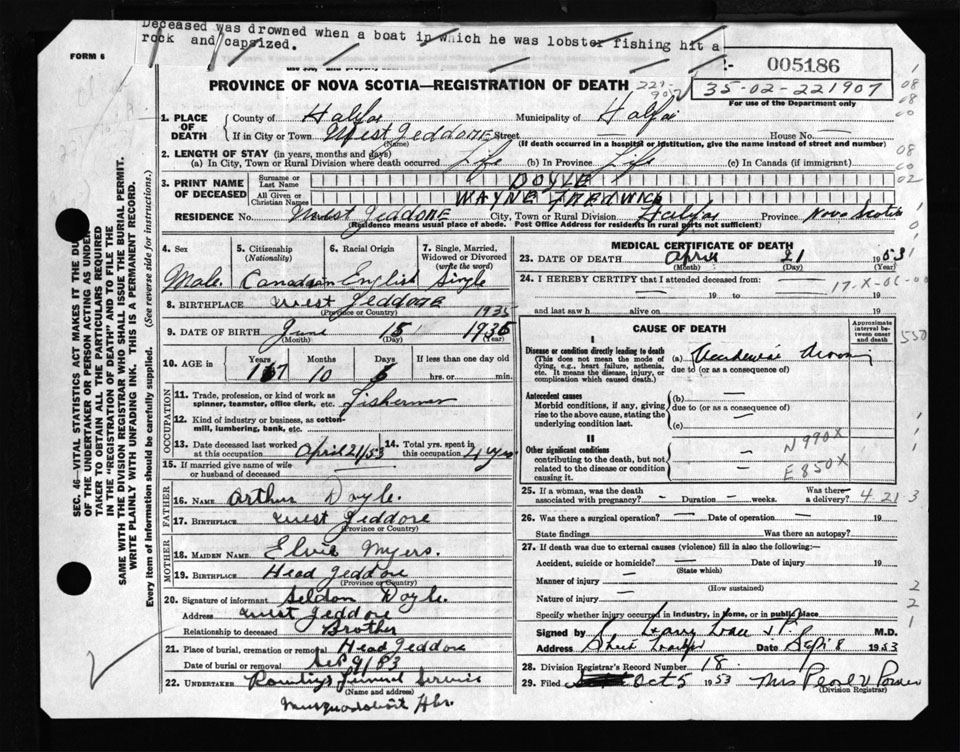 Deceased was drowned when a boat in which he was lobster fishing hit a
rock and capsized.
FORM 6
005186
35-02-221907
For use of the Department only
PROVINCE OF NOVA SCOTIA—REGISTRATION OF DEATH
221-
907
1. PLACE OF DEATH
County of Halifax Municipality of Halifax
If in City or Town West Jeddore Street House No. —
(Name) (If death occurred in a hospital or institution, give the name instead of street and number)
2. LENGTH OF STAY (in years, months and days)
(a) In City, Town or Rural Division where death occurred Life (b) In Province Life (c) In Canada (if immigrant)
3. PRINT NAME OF DECEASED
Surname or Last Name DOYLE
All Given or Christian Names WAYNE FREDRICK
RESIDENCE No. West Jeddore City, Town or Rural Division Halifax Province Nova Scotia
(Residence means usual place of abode. Post Office Address for residents in rural parts not sufficient)
4. Sex
Male
5. Citizenship (Nationality)
Canadian
6. Racial Origin
English
7. Single, Married, Widowed or Divorced (write the word)
Single
8. BIRTHPLACE West Jeddore
(Province or Country)
1935
9. DATE OF BIRTH June 15 1936
(Month) (Day) (Year)
10. AGE in Years Months Days If less than one day old
17 10 6 hrs. or min.
OCCUPATION
11. Trade, profession, or kind of work as spinner, teamster, office clerk, etc. Fisherman
12. Kind of industry or business, as cotton-mill, lumbering, bank, etc. —
13. Date deceased last worked at this occupation April 21/53
14. Total yrs. spent in this occupation 2 yrs
15. If married give name of wife or husband of deceased
FATHER
16. NAME Arthur Doyle.
17. BIRTHPLACE West Jeddore
(Province or Country)
MOTHER
18. MAIDEN NAME Elvie Myers.
19. BIRTHPLACE Head Jeddore
(Province or Country)
20. Signature of informant Seldon Doyle.
Address West Jeddore
Relationship to deceased Brother
21. Place of burial, cremation or removal Head Jeddore
Date of burial or removal Sep 9/53
22. UNDERTAKER Funeral Service
(Name and address)
Musquodoboit Hbr.
MEDICAL CERTIFICATE OF DEATH
23. DATE OF DEATH April 21 1953
(Month) (Day) (Year)
24. I HEREBY CERTIFY that I attended deceased from:
— 19 to — 19
and last saw h alive on 19
CAUSE OF DEATH
Approximate interval between onset and death
I
Disease or condition directly leading to death
(This does not mean the mode of dying, e.g., heart failure, asthenia, etc. It means the disease, injury, or complication which caused death.)
(a) Accidental
due to (or as a consequence of)
Antecedent causes
Morbid conditions, if any, giving rise to the above cause, stating the underlying condition last.
(b) —
due to (or as a consequence of)
(c) —
II
Other significant conditions
contributing to the death, but not related to the disease or condition causing it.
N990X
E850X
25. If a woman, was the death associated with pregnancy? — Duration — weeks. Was there a delivery?
4 21 3
26. Was there a surgical operation? — Date of operation — 19
State findings Was there an autopsy?
27. If death was due to external causes (violence) fill in also the following:—
Accident, suicide or homicide? — Date of injury 19
(State which)
Manner of injury —
(How sustained)
Nature of injury —
Specify whether injury occurred in industry, in home, or in public place
Signed by M.D.
Address Date Sept 8 1953
28. Division Registrar's Record Number 18.
29. Filed Oct 5 1953 Mrs Pearl V
(Division Registrar)
SEC. 46—VITAL STATISTICS ACT MAKES IT THE DUTY
OF THE UNDERTAKER OR PERSON ACTING AS UNDERTAKER
TO OBTAIN ALL THE PARTICULARS REQUIRED
IN THE "REGISTRATION OF DEATH" AND TO FILE THE
SAME WITH THE DIVISION REGISTRAR WHO SHALL ISSUE THE BURIAL PERMIT.
WRITE PLAINLY WITH UNFADING INK. THIS IS A PERMANENT RECORD.
Every item of information should be carefully supplied. (See reverse side for instructions.)